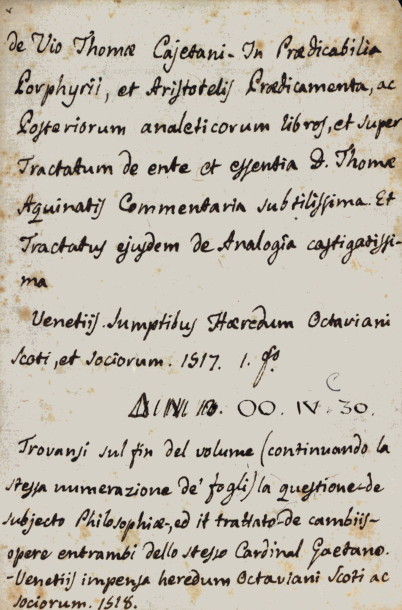 de Vio Thomæ Cajetani - In Prædicabilia
Porphyrii, et Aristotelis Prædicamenta, ac
Posteriorum analeticorum libros, et super
Tractatum de ente et essentia D. Thomæ
Aquinatis Commentaria subtilissima. Et
Tractatus ejusdem de Analogia castigatissi-
ma
Venetiis. Sumptibus Hæredum Octaviani
Scoti, et sociorum. 1517. 1. fo.
OO. IV. C 30.
Trovansi sul fin del volume (continuando la
stessa numerazione de' fogli) la questione de
subjecto Philosophiæ, ed il trattato de cambiis -
opere entrambi dello stesso Cardinal Gaetano.
- Venetiis impensa heredum Octaviani Scoti ac
sociorum. 1518.